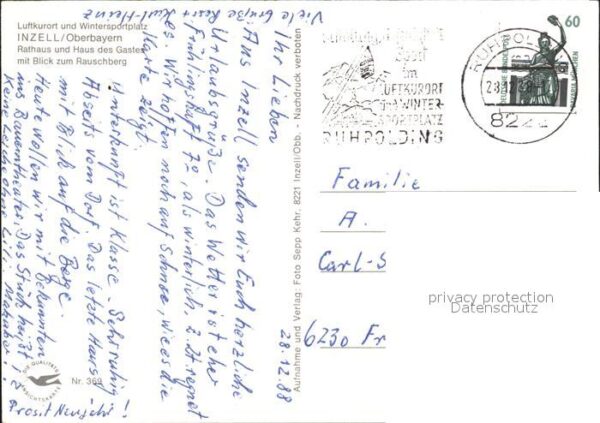 Luftkurort und Wintersportplatz
INZELL/Oberbayern
Rathaus und Haus des Gastes
mit Blick zum Rauschberg
28.12.88
Ihr Lieben
Aus Inzell senden wir Euch herzliche
Urlaubsgrüße. Das Wetter ist eher
frühlingshaft 7°, als winterlich. Z. Zt. regnet
es. Wir hoffen noch auf Schnee, wie es die
Karte zeigt.
Unterkunft ist Klasse. Sehr ruhig
Abseits vom Dorf. Das letzte Haus
mit Blick auf die Berge.
Heute wollen wir mit Bekannten
ins Bauerntheater. Das Stück heißt
Keine Leiche ohne Lili
Prosit Neujahr!
Viele Grüße
Karl-Heinz
Aufnahme und Verlag: Foto Sepp Kehr, 8221 Inzell/Obb. - Nachdruck verboten
DIE QUALITÄTS
ANSICHTSKARTE
Nr. 369
im
LUFTKURORT
WINTER-
SPORTPLATZ
RUHPOLDING
RUHPOLD
28.12.88
822
60
DEUTSCHE BUNDESPOST
BAVARIA MÜNCHEN
Familie
A.
Carl-S
6230 Fr
privacy protection
Datenschutz